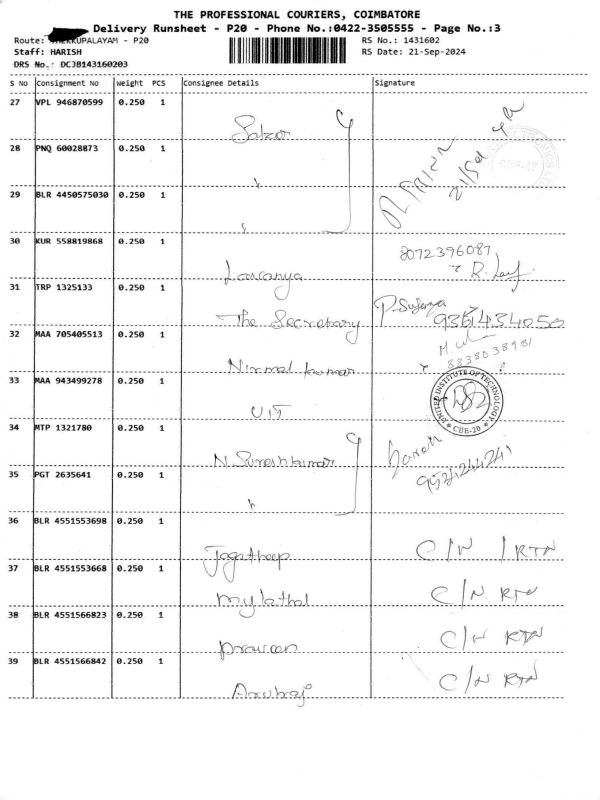 THE PROFESSIONAL COURIERS, COIMBATORE
Delivery Runsheet - P20 - Phone No.:0422-3505555 - Page No.:3
Route: THEKKUPALAYAM - P20
RS No.: 1431602
Staff: HARISH
RS Date: 21-Sep-2024
DRS No.: DCJB143160203
S No Consignment No Weight PCS Consignee Details Signature
27 VPL 946870599 0.250 1
28 PNQ 60028873 0.250 1
29 BLR 4450575030 0.250 1
30 KUR 558819868 0.250 1 Lavanya 8072396087
31 TRP 1325133 0.250 1 The Secretary 9361434050
32 MAA 705405513 0.250 1 Nirmal kumar 8838038981
33 MAA 943499278 0.250 1 UIT
UNITED INSTITUTE OF TECHNOLOGY
* CBE-20 *
34 MTP 1321780 0.250 1 N. Sureshkumar
35 PGT 2635641 0.250 1
36 BLR 4551553698 0.250 1 Jagatheep C/N / RTN
37 BLR 4551553668 0.250 1 Mylathal C/N RTN
38 BLR 4551566823 0.250 1 praveen C/N RTN
39 BLR 4551566842 0.250 1 C/N RTN